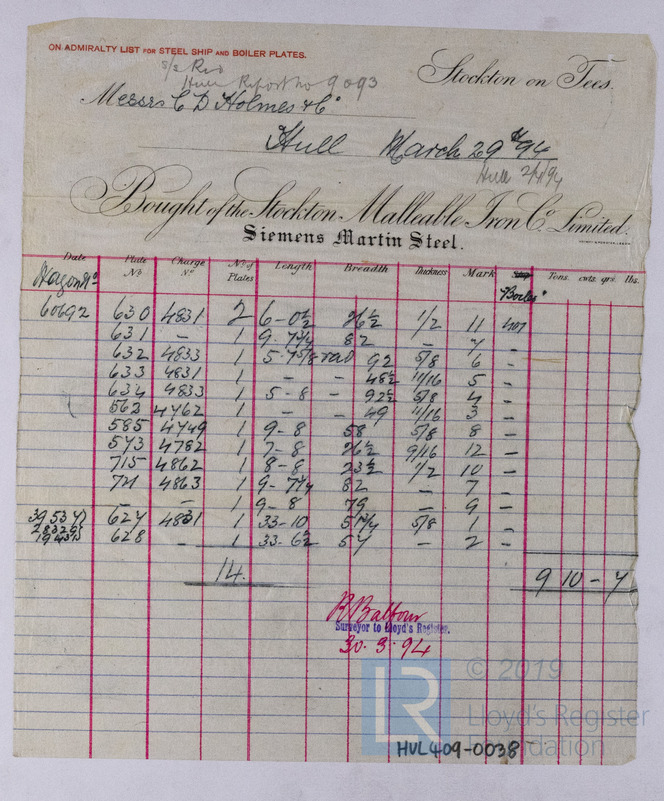 ON ADMIRALTY LIST FOR STEEL SHIP AND BOILER PLATES.
s/s Rio
Hull Report No 9093
Stockton on Tees.
Messrs C D Holmes & Co
Hull March 29th 94
Hull 2/4/94
Bought of the Stockton Malleable Iron Co. Limited.
Siemens Martin Steel.
Date Plate No. Charge No. No. of Plates Length Breadth Thickness Mark Tons. cwts. qrs. lbs.
Wagon No "Boiler"
60692 630 4831 2 6-0½ 26½ 1/2 11 401
631 — 1 9-7¾ 82 — 7 -
632 4833 1 5-7 5/8 rad 92 5/8 6 -
633 4831 1 - - 48½ 11/16 5 -
634 4833 1 5-8 - 92½ 5/8 4 -
562 4762 1 - - 49 11/16 3 -
585 4749 1 9-8 58 5/8 8 -
573 4782 1 7-8 26½ 9/16 12 -
715 4862 1 8-8 23½ 1/2 10 -
721 4863 1 9-7¾ 82 — 7 -
— — 1 9-8 79 — 9 -
39534 627 4831 1 33-10 57¼ 5/8 1 -
628 - 1 33-6½ 57 — 2 -
14 9 10 - 7
B Balfour
Surveyor to Lloyd's Register.
30.3.94
LR
© 2019
Lloyd's Register
Foundation
HUL409-0038